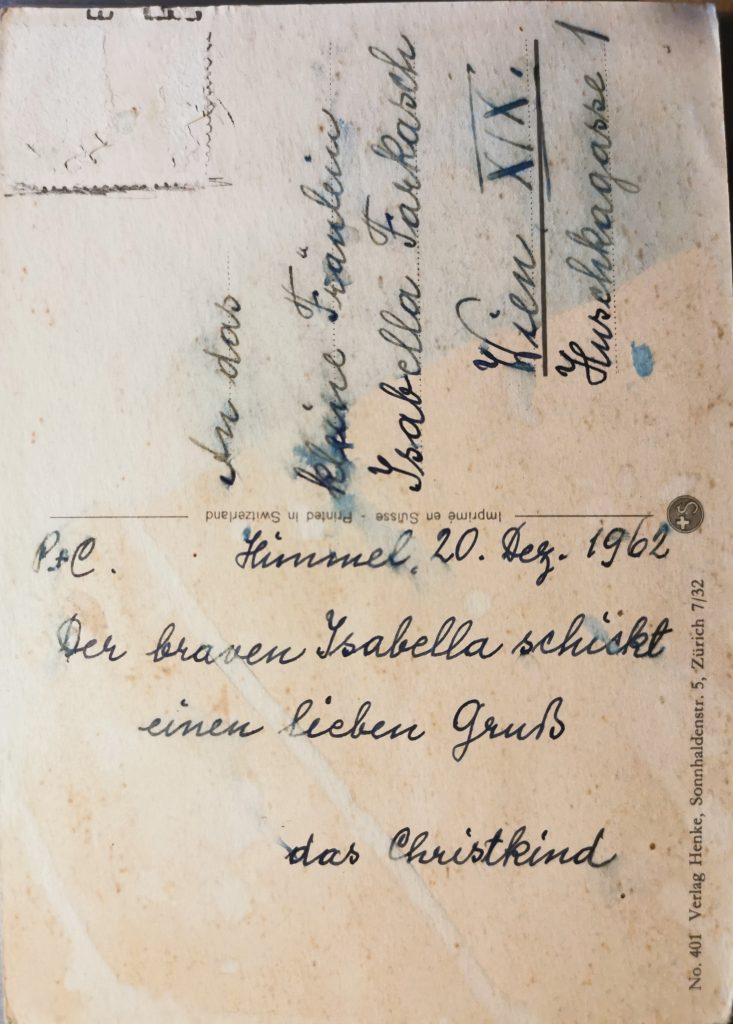 P+C. Himmel, 20. Dez. 1962
Der braven Isabella schickt
einen lieben Gruß
das Christkind
An das
kleine Fräulein
Isabella Farkasch
Wien XIX.
Huschkagasse 1
Imprimé en Suisse - Printed in Switzerland
No. 401 Verlag Henke, Sonnhaldenstr. 5, Zürich 7/32